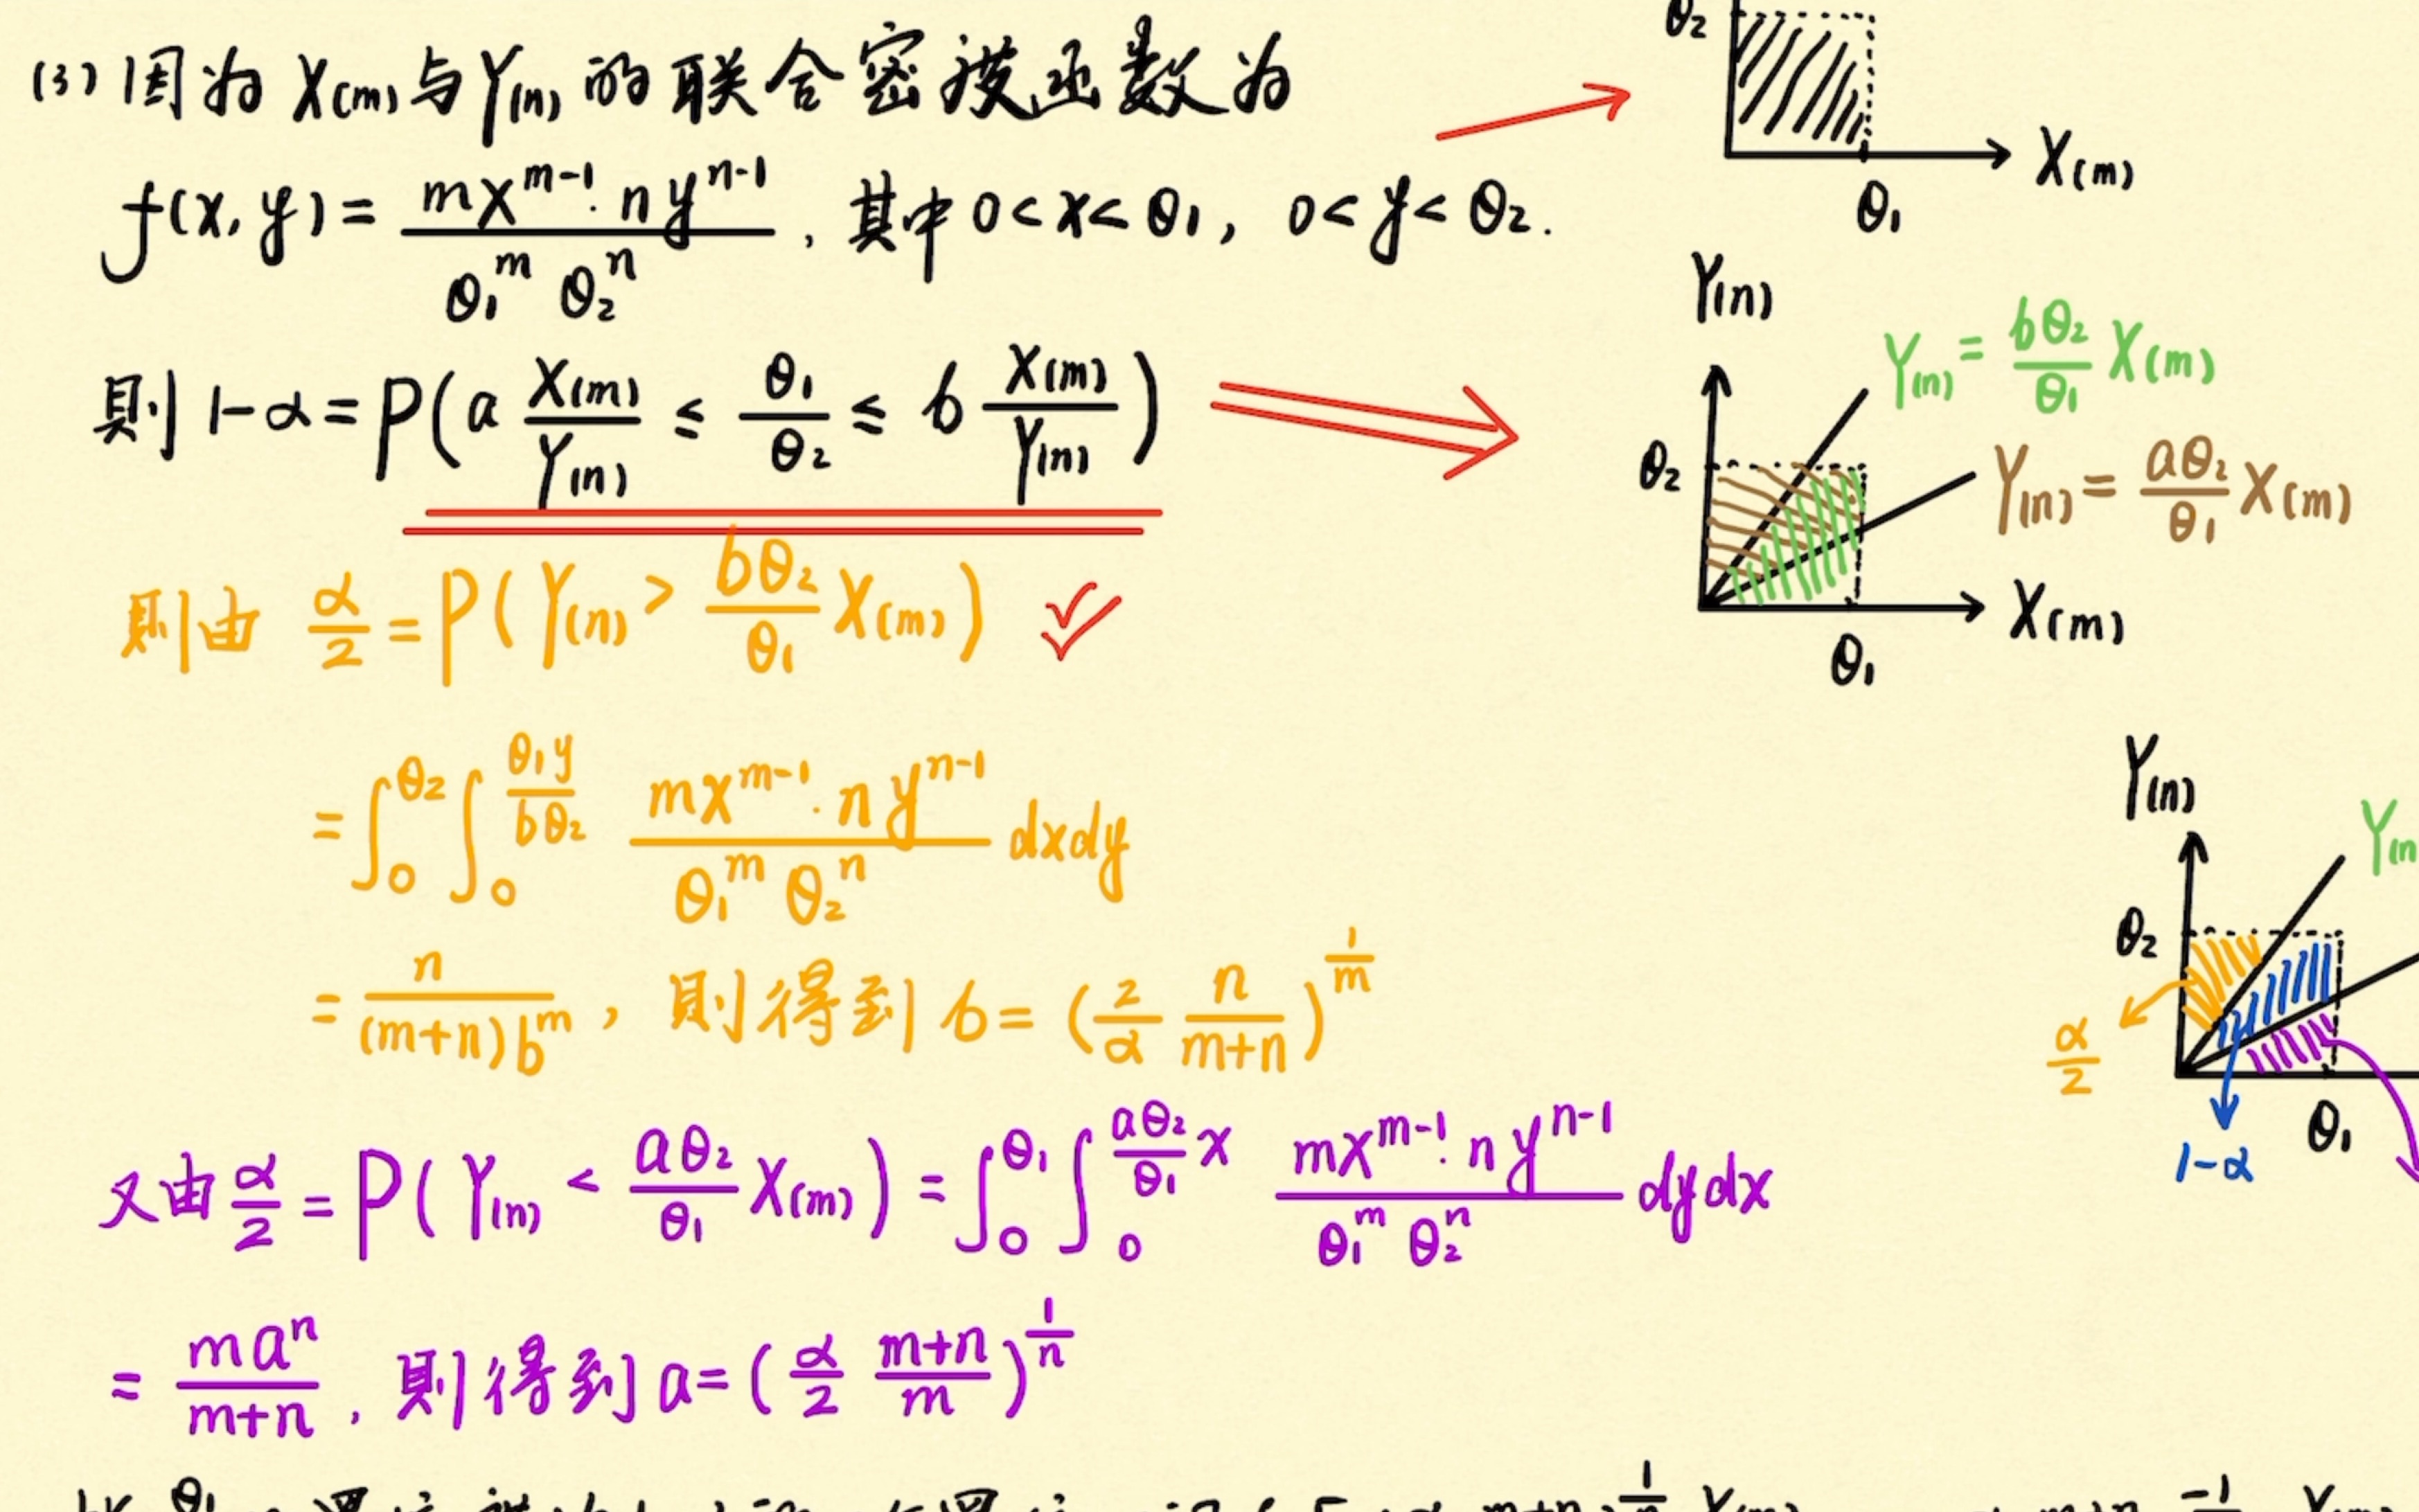 (3) 因为 X(m) 与 Y(n) 的联合密度函数为
f(x, y) = mx^{m-1}·ny^{n-1} / θ₁^m θ₂^n , 其中 0 < x < θ₁, 0 < y < θ₂.
则 1-α = P( a X(m)/Y(n) ≤ θ₁/θ₂ ≤ b X(m)/Y(n) )
则由 α/2 = P( Y(n) > bθ₂/θ₁ X(m) )
= ∫_0^{θ₂} ∫_0^{θ₁y/bθ₂} mx^{m-1}·ny^{n-1} / θ₁^m θ₂^n dxdy
= n/(m+n)b^m , 则得到 b = (2/α n/m+n)^{1/m}
又由 α/2 = P( Y(n) < aθ₂/θ₁ X(m) ) = ∫_0^{θ₁} ∫_0^{aθ₂/θ₁ x} mx^{m-1}·ny^{n-1} / θ₁^m θ₂^n dydx
= ma^n/m+n , 则得到 a = (α/2 m+n/m)^{1/n}
θ₂
X(m)
θ₁
Y(n)
Y(n) = bθ₂/θ₁ X(m)
θ₂
Y(n) = aθ₂/θ₁ X(m)
X(m)
θ₁
Y(n)
Y(n
θ₂
α/2
θ₁
1-α